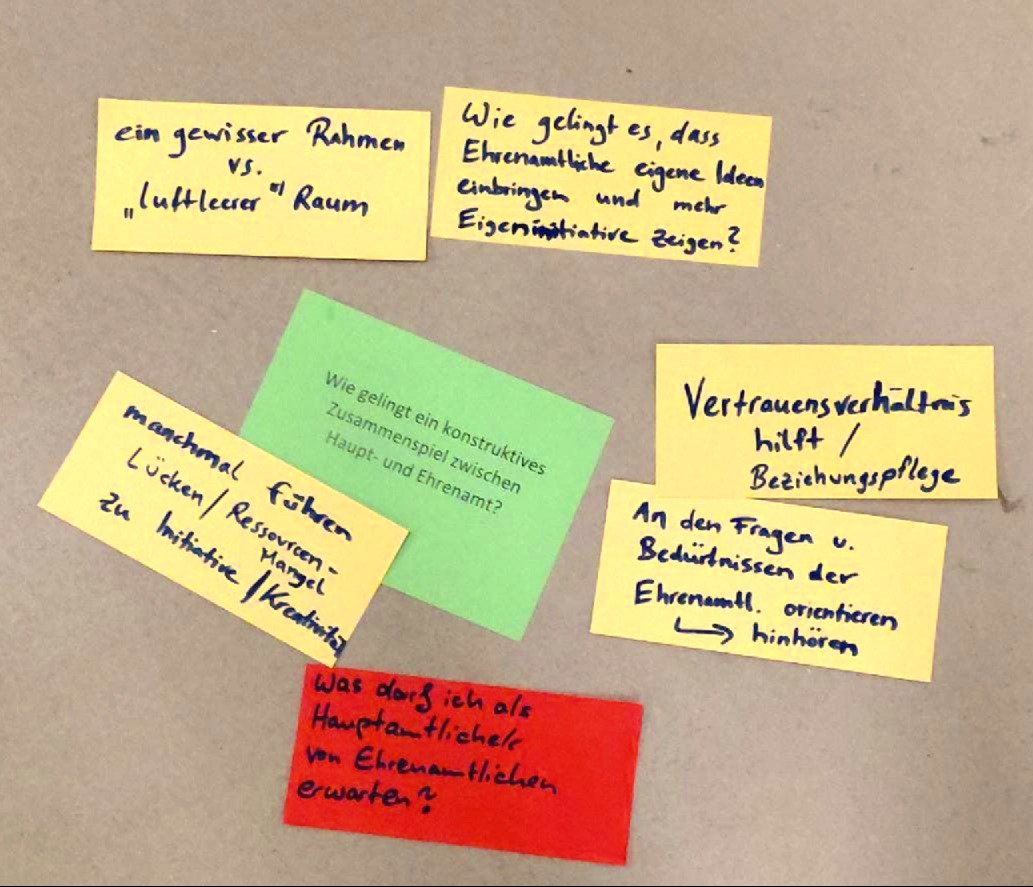 ein gewisser Rahmen
vs.
"luftleerer" Raum
Wie gelingt es, dass
Ehrenamtliche eigene Ideen
einbringen und mehr
Eigeninitiative zeigen?
Wie gelingt ein konstruktives
Zusammenspiel zwischen
Haupt- und Ehrenamt?
manchmal führen
Lücken/Ressourcen-
Mangel
zu Initiative/Kreativität
Vertrauensverhältnis
hilft /
Beziehungspflege
An den Fragen u.
Bedürfnissen der
Ehrenamtl. orientieren
↳ hinhören
Was darf ich als
Hauptamtliche/r
von Ehrenamtlichen
erwarten?